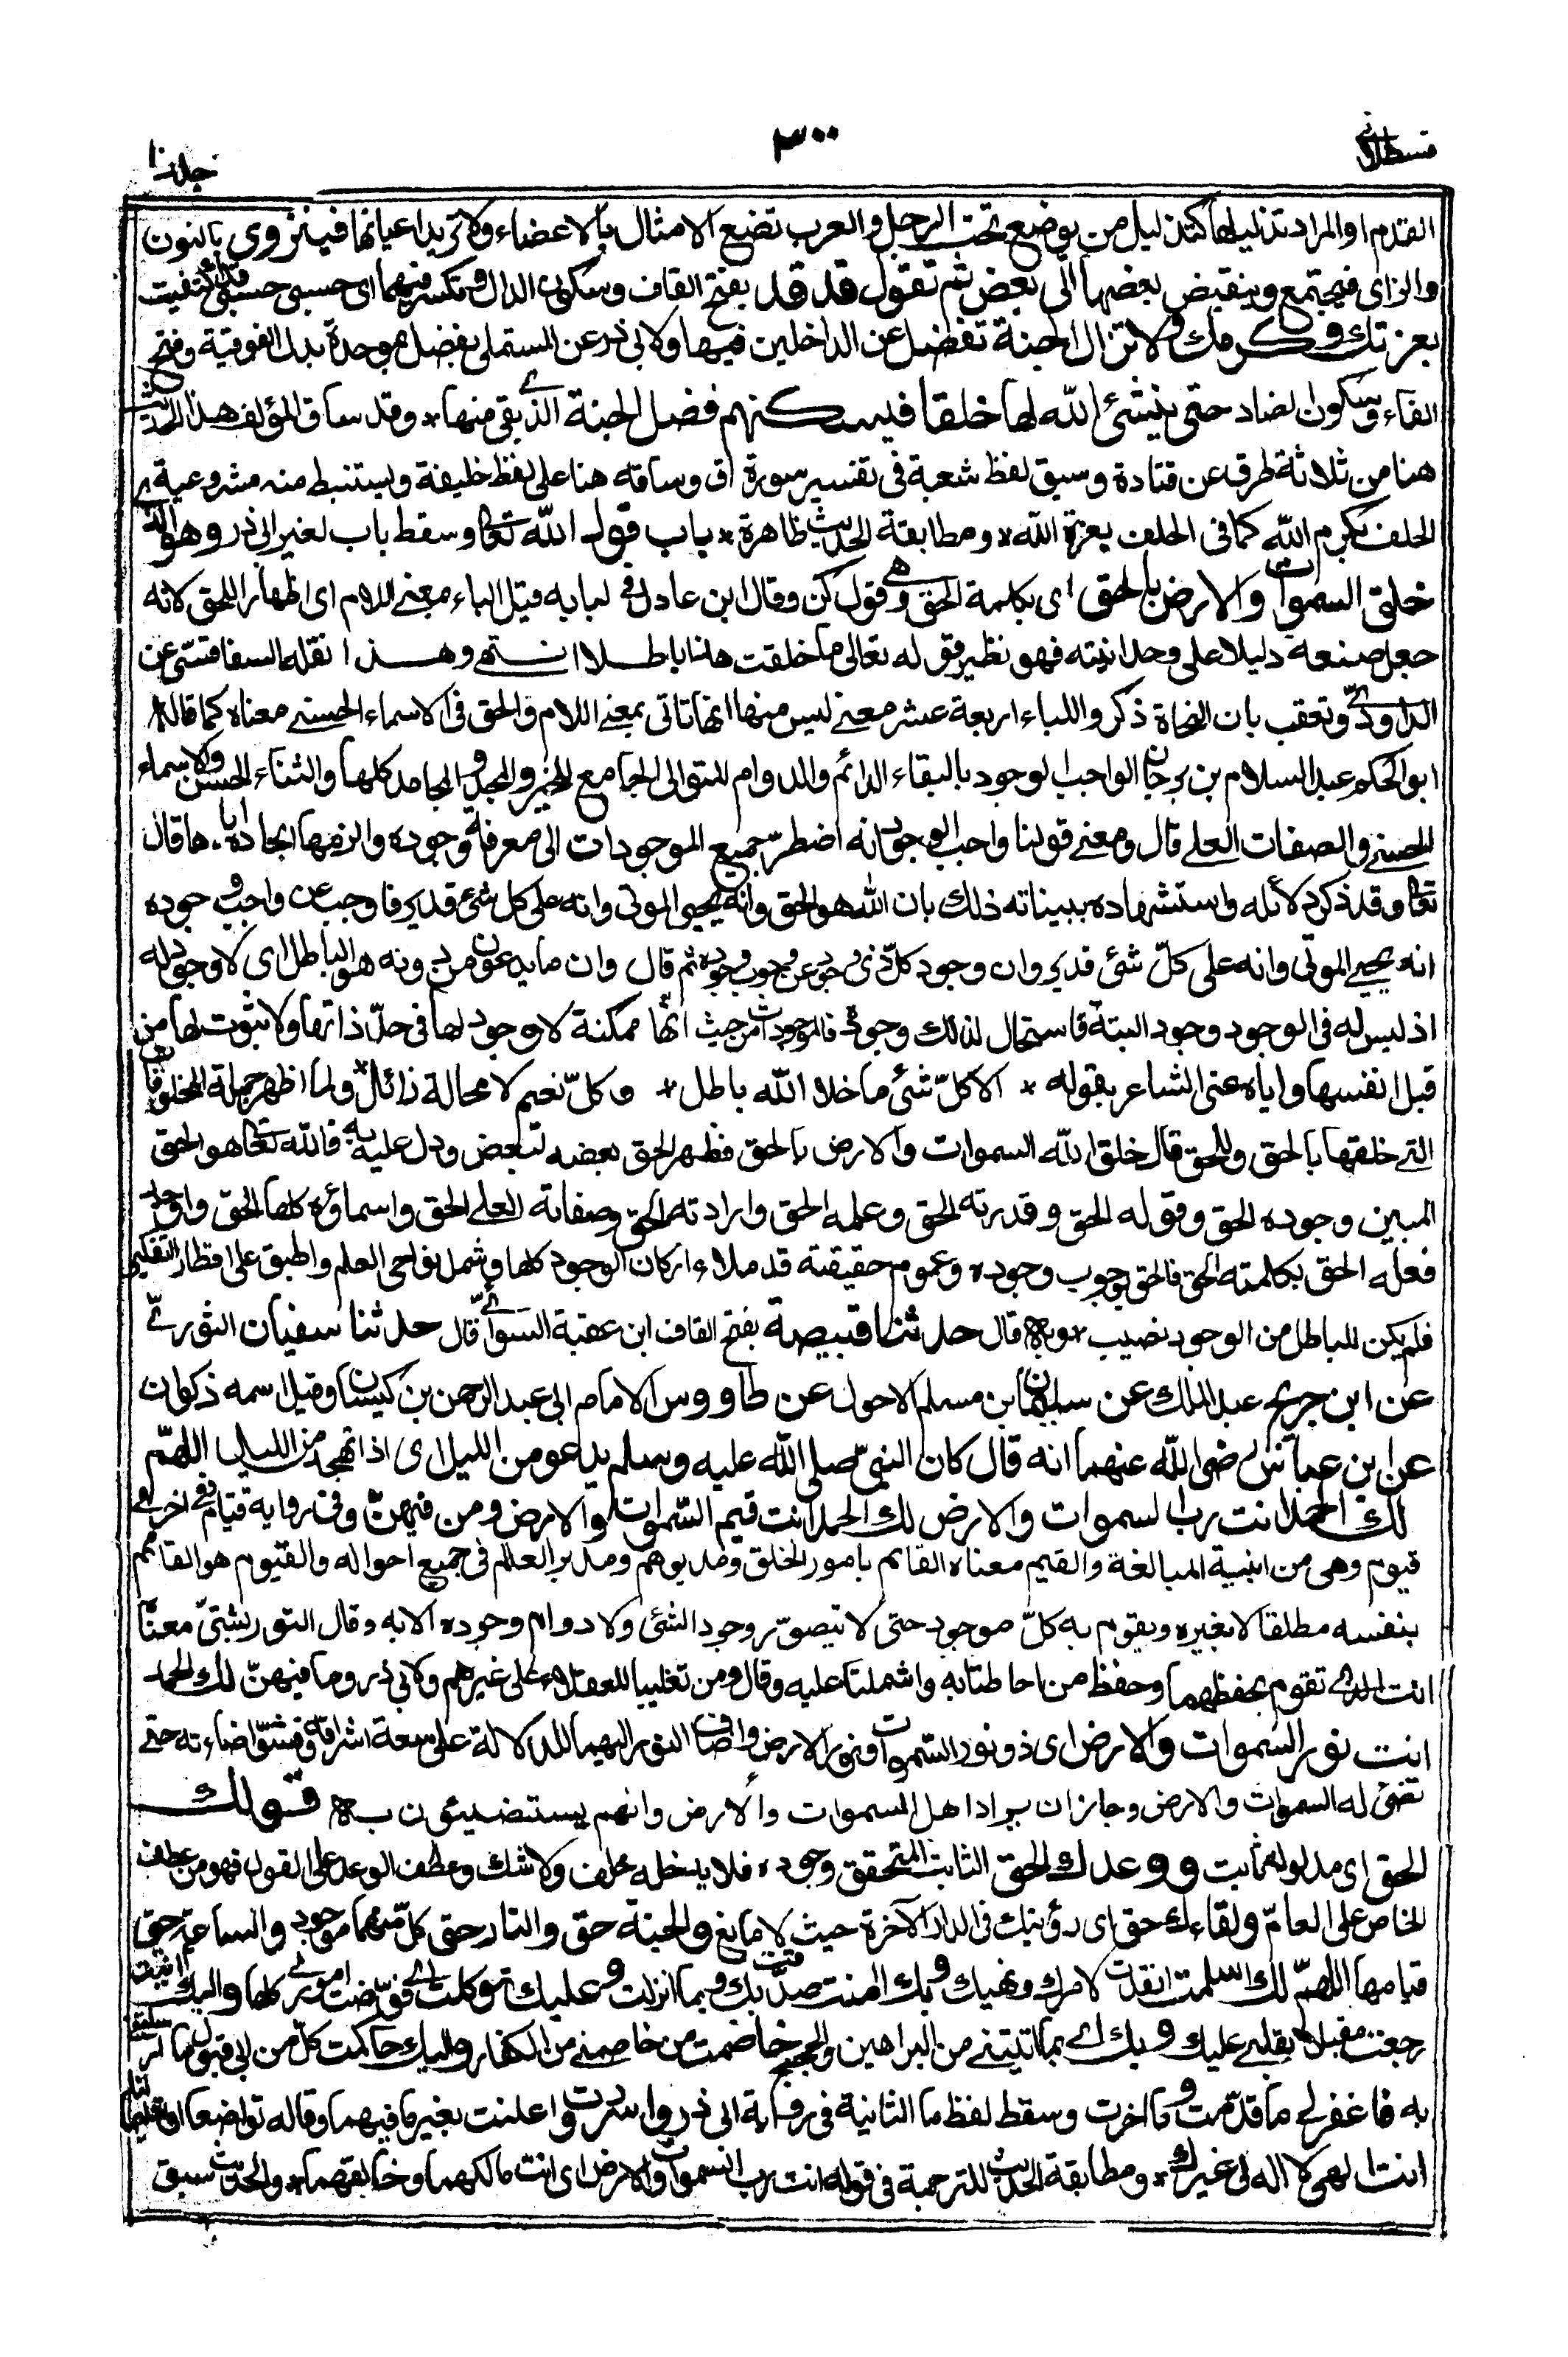 قسطلانى
٣٠٠
جلد١٠
القدم او المراد تذليلها كتذليل من يوضع تحت الرجل والعرب تضع الامثال بالاعضاء ولا تريد اعيانها فينزوى بالنون
والزاى فيجتمع وينقبض بعضها الى بعض ثم تقول قد قد بفتح القاف وسكون الدال وتكسر فيهما اى حسبى حسبى قد اكتفيت
بعزتك وكرمك ولا تزال الجنة تفضل عن الداخلين فيها ولابى ذر عن المستملى بفضل بموحدة بدل الفوقية وفتح
الفاء وسكون الضاد حتى ينشئ الله لها خلقا فيسكنهم فضل الجنة الذى بقى منها * وقد ساق المؤلف هذا الحديث
هنا من ثلاثة طرق عن قتادة وسبق لفظ شعبة فى تفسير سورة ق وساقه هنا على لفظ خليفة ويستنبط منه مشروعية
الحلف بكرم الله كما فى الحلف بعزة الله * ومطابقة الحديث ظاهرة * باب قول الله تعالى وسقط باب لغير ابى ذر وهو الذى
خلق السموات والارض بالحق اى بكلمة الحق وهى قول كن وقال ابن عادل فى لبابه قيل الباء بمعنى اللام اى اظهارا للحق لانه
جعل صنعه دليلا على وحدانيته فهو نظير قوله تعالى ما خلقت هذا باطلا انتهى وهذا نقله السفاقسى عن
الداودى وتعقب بان النحاة ذكروا للباء اربعة عشر معنى ليس منها انها تاتى بمعنى اللام والحق فى الاسماء الحسنى معناه كما قاله
ابو الحكم عبد السلام بن برجان الواجب الوجود بالبقاء الدائم والدوام المتوالى الجامع للخير والمجد والمحامد كلها والثناء الحسن والاسماء
الحسنى والصفات العلى قال ومعنى قولنا واجب الوجود انه اضطر جميع الموجودات الى معرفة وجوده والزمها ايجاده اياها قال
تعالى وقد ذكر دلائله واستشهاده ببيناته ذلك بان الله هو الحق وانه يحيى الموتى وانه على كل شئ قدير فاوجب عن واجب وجوده
انه يحيى الموتى وانه على كل شئ قدير وان وجود كل ذى وجود عن وجوب وجوده ثم قال وان ما يدعون من دونه هو الباطل اى لا وجود له
اذ ليس له فى الوجود وجود البتة فاستحال لذلك وجوده فالموجودات من حيث انها ممكنة لا وجود لها فى حد ذاتها ولا ثبوت لها من
قبل انفسها واياه عنى الشاعر بقوله * الا كل شئ ما خلا الله باطل * وكل نعيم لا محالة زائل * ولما اظهر جملة المخلوقات
التى خلقها بالحق وللحق قال خلق الله السموات والارض بالحق فظهر الحق بعضه لبعض ودل عليه به فالله تعالى هو الحق
المبين وجوده الحق وقوله الحق وقدرته الحق وعلمه الحق وارادته الحق وصفاته العلى الحق واسماؤه كلها الحق واوجد
فعله الحق بكلمته الحق فالحق بوجوب وجوده وعموم حقيقته قد ملاء اركان الوجود كلها وشمل نواحى العلم واطبق على اقطار التفكير
فلم يكن للباطل من الوجود نصيب * وبه قال حدثنا قبيصة بفتح القاف ابن عقبة السوائى قال حدثنا سفيان الثورى
عن ابن جريج عبد الملك عن سليمان بن مسلم الاحول عن طاووس الامام ابى عبد الرحمن بن كيسان وقيل اسمه ذكوان
عن ابن عباس رضى الله عنهما انه قال كان النبى صلى الله عليه وسلم يدعو من الليل اى اذا تهجد من الليل اللهم
لك الحمد انت رب السموات والارض لك الحمد انت قيم السموات والارض ومن فيهن وفى رواية قيام وفى اخرى
قيوم وهى من ابنية المبالغة والقيم معناه القائم بامور الخلق ومدبرهم ومدبر العالم فى جميع احواله والقيوم هو القائم
بنفسه مطلقا لا بغيره ويقوم به كل موجود حتى لا يتصور وجود الشئ ولا دوام وجوده الا به وقال التوربشتى معناه
انت الذى تقوم بحفظهما وحفظ من احاطتا به واشتملتا عليه وقال ومن تغليبا للعقلاء على غيرهم ولابى ذر وما فيهن لك الحمد
انت نور السموات والارض اى ذو نور السموات ونور الارض واضاف النور اليهما للدلالة على سعة اشراقه وفشو اضاءته حتى
تضئ له السموات والارض وجاز ان يراد اهل السموات والارض وانهم يستضيئون به قولك
الحق اى مدلوله ثابت ووعدك الحق الثابت المتحقق وجوده فلا يدخله خلف ولا شك وعطف الوعد على القول فهو من عطف
الخاص على العام ولقاءك حق اى رؤيتك فى الدار الآخرة حيث لا مانع والجنة حق والنار حق كل منهما موجود والساعة حق
قيامها اللهم لك اسلمت انقدت لامرك ونهيك وبك امنت صدقت بك وبما انزلت وعليك توكلت اى فوضت امورى كلها واليك انبت
رجعت مقبلا بقلبى عليك وبك اى بما اتيتنى من البراهين والحجج خاصمت من خاصمنى من الكفار واليك حاكمت كل من ابى قبول ما ارسلتنى
به فاغفر لى ما قدمت وما اخرت وسقط لفظ ما الثانية فى رواية ابى ذر واسررت واعلنت بغير ما فيهما وقاله تواضعا او تعليما لنا
انت الهى لا اله لى غيرك * ومطابقة الحديث للترجمة فى قوله انت رب السموات والارض اى انت مالكهما وخالقهما * والحديث سبق